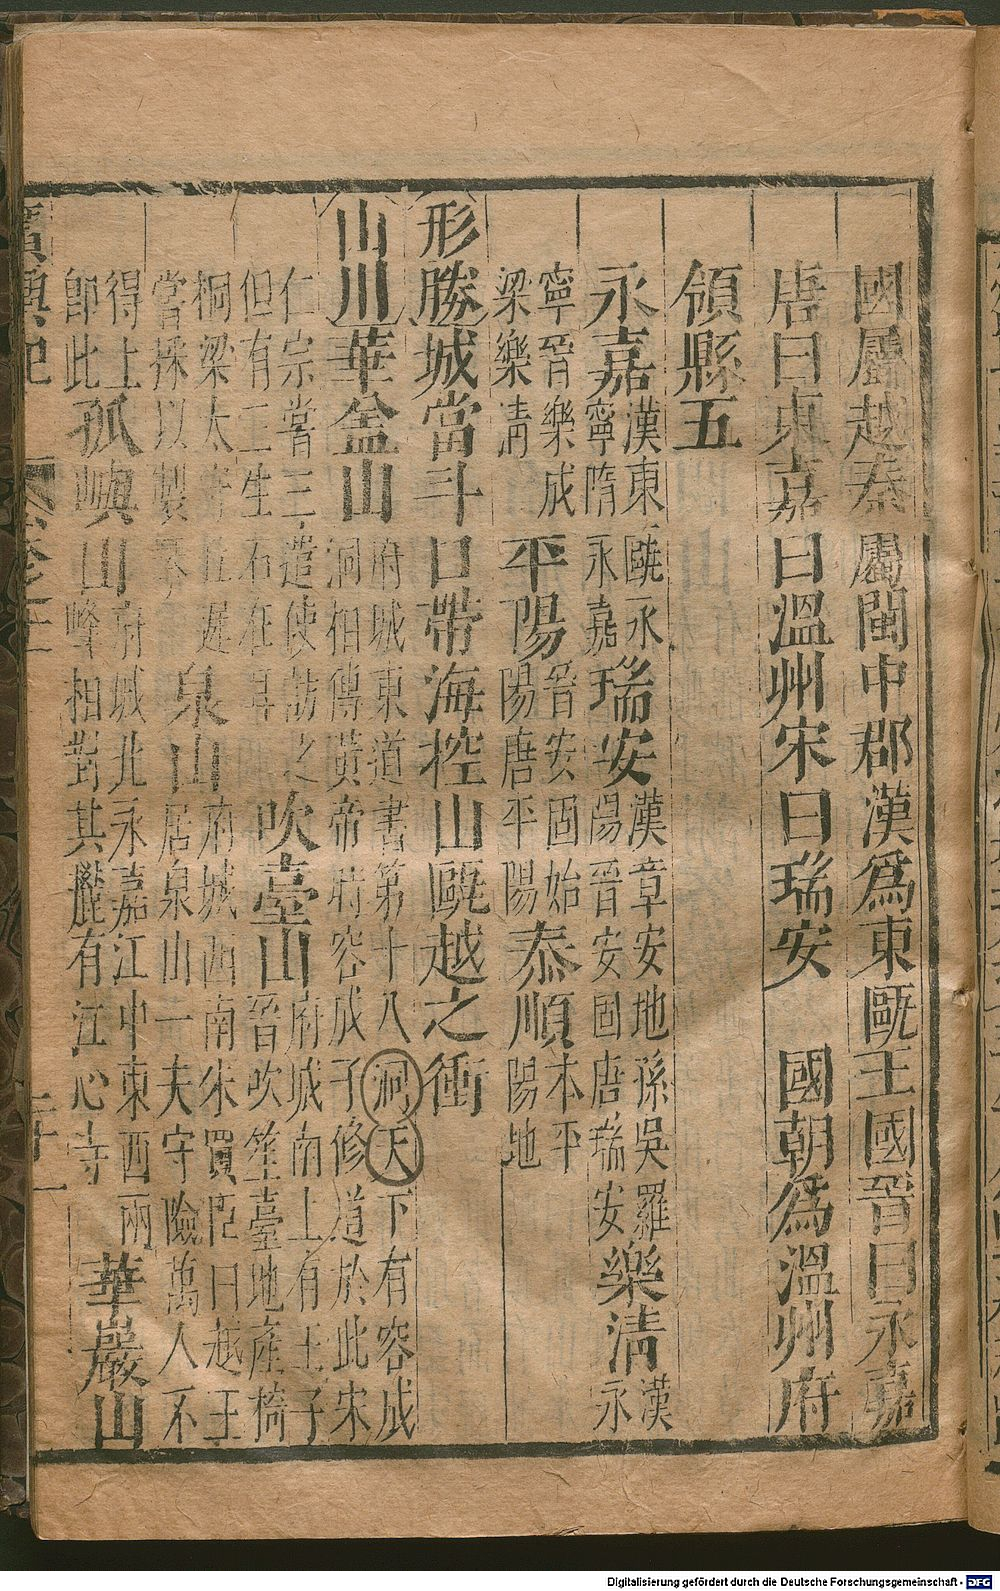 國屬越秦屬閩中郡漢爲東甌王國晉曰永嘉
唐曰東嘉曰溫州宋曰瑞安 國朝爲溫州府
領縣五
永嘉漢東甌永
寧隋永嘉瑞安漢章安地孫吳羅
陽晉安固唐瑞安樂清漢
永
寧晉樂成
梁樂清平陽晉安固始
陽唐平陽泰順本平
陽地
形勝城當斗口帶海控山甌越之衝
山川華盖山府城東道書第十八洞天下有容成
洞相傳黃帝時容成子修道於此宋
仁宗嘗三遣使訪之
但有二生石在耳吹臺山府城南上有王子
晉吹笙臺地產椅
桐梁太守丘遲
嘗採以製琴泉山府城西南朱買臣曰越王
居泉山一夫守險萬人不
得上
即此孤嶼山府城北永嘉江中東西兩
峰相對其麓有江心寺華巖山
廣輿記 卷之十一 二十一
Digitalisierung gefördert durch die Deutsche Forschungsgemeinschaft - DFG